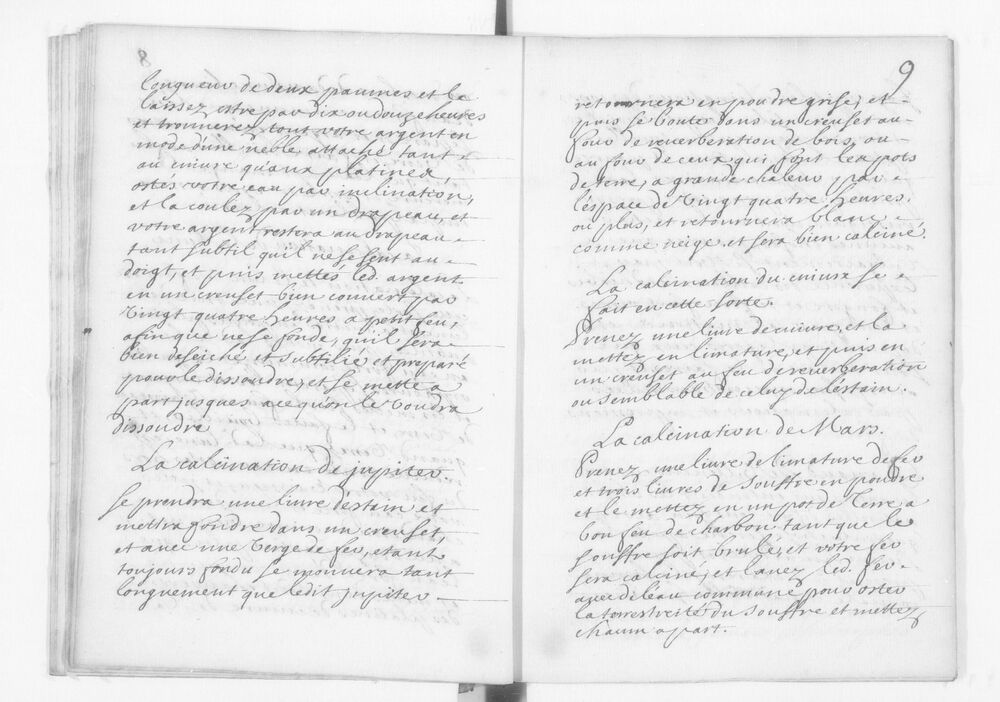 8
longueur de deux paumes et le
laissez estre par dix ou douze heures
et trouuerez tout votre argent en
mode d'une neble, attaché tant
au cuiure qu'aux platines,
ostés votre eau par inclination,
et la coulez par un drapeau, et
votre argent restera au drapeau
tant subtil qu'il ne se sent au
doigt, et puis mettés led. argent
en un creuset bien couuert par
vingt quatre heures a petit feu,
afin que ne se fonde, qu'il sera
bien deseiché et subtilié et preparé
pour le dissoudre, et se mette a
part jusques a ce qu'on le voudra
dissoudre
La calcination de jupiter.
se prendra une liure d'estain et
mettra fondre dans un creuset,
et auec une verge de fer, etant
toujours fondu se mouuera tant
longuement que ledit jupiter
9
retournera en poudre grise, et
puis se boute dans un creuset au
four de reuerberation de bois, ou
au four de ceux qui font les pots
de terre, a grande chaleur par
l'espace de vingt quatre heures.
ou plus, et retournera blanc
comme neige. et sera bien calciné.
La calcination du cuiure se
fait en cette sorte.
Prenez une liure de cuiure, et la
mettez en limature, et puis en
un creuset au feu de reuerberation
ou semblable de celuy de l'estain.
La calcination de Mars.
Prenez une liure de limature de fer
et trois liures de souffre en poudre
et le mettez en un pot de terre, a
bon feu de charbon tant que le
souffre soit brulé, et votre fer
sera calciné, et lauez led. fer
auec de leau commune pour oster
la terrestreité du souffre et mettez
chacun a part.